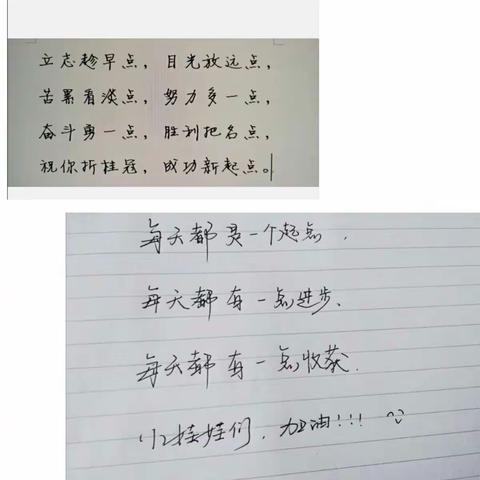 立志趁早点，目光放远点，
苦累看淡点，努力多一点，
奋斗勇一点，胜利把名点，
祝你折桂冠，成功新起点。
每天都是一个起点．
每天都有一点进步．
每天都有一点收获．
小娃娃们．加油！！！